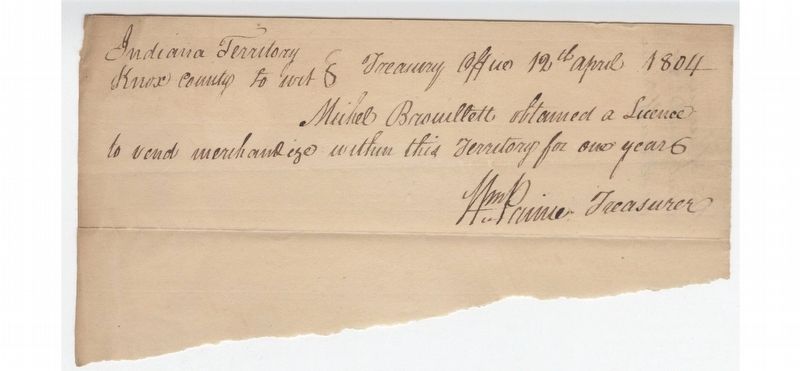 Indiana Territory
Knox county to wit } Treasury Office 12th april 1804
Michel Brouillett obtained a Licence
to vend merchandize within this Territory for one year
Wm Treasurer